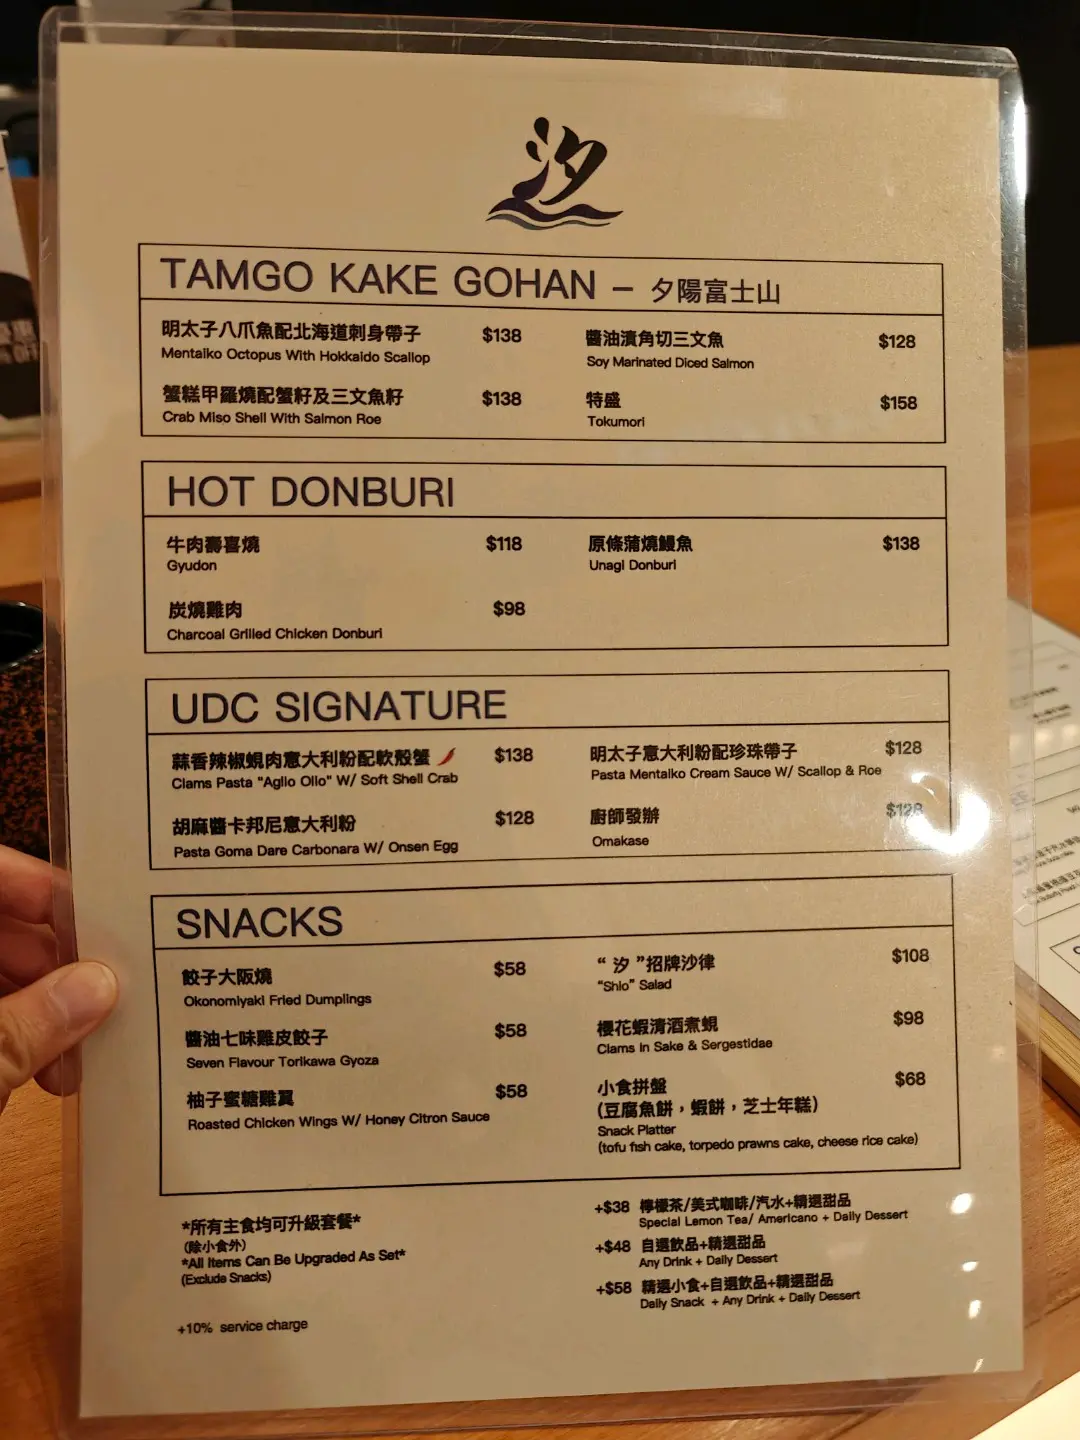 汐
TAMGO KAKE GOHAN – 夕陽富士山
明太子八爪魚配北海道刺身帶子 $138
Mentaiko Octopus With Hokkaido Scallop
蟹糕甲羅燒配蟹籽及三文魚籽 $138
Crab Miso Shell With Salmon Roe
醬油漬角切三文魚 $128
Soy Marinated Diced Salmon
特盛 $158
Tokumori
HOT DONBURI
牛肉壽喜燒 $118
Gyudon
炭燒雞肉 $98
Charcoal Grilled Chicken Donburi
原條蒲燒鰻魚 $138
Unagi Donburi
UDC SIGNATURE
蒜香辣椒蜆肉意大利粉配軟殼蟹 $138
Clams Pasta "Aglio Olio" W/ Soft Shell Crab
胡麻醬卡邦尼意大利粉 $128
Pasta Goma Dare Carbonara W/ Onsen Egg
明太子意大利粉配珍珠帶子 $128
Pasta Mentaiko Cream Sauce W/ Scallop & Roe
廚師發辦 $128
Omakase
SNACKS
餃子大阪燒 $58
Okonomiyaki Fried Dumplings
醬油七味雞皮餃子 $58
Seven Flavour Torikawa Gyoza
柚子蜜糖雞翼 $58
Roasted Chicken Wings W/ Honey Citron Sauce
“ 汐 ”招牌沙律 $108
“Shio” Salad
櫻花蝦清酒煮蜆 $98
Clams in Sake & Sergestidae
小食拼盤 $68
(豆腐魚餅，蝦餅，芝士年糕)
Snack Platter
(tofu fish cake, torpedo prawns cake, cheese rice cake)
*所有主食均可升級套餐*
(除小食外)
*All Items Can Be Upgraded As Set*
(Exclude Snacks)
+10% service charge
+$38 檸檬茶/美式咖啡/汽水+精選甜品
Special Lemon Tea/ Americano + Daily Dessert
+$48 自選飲品+精選甜品
Any Drink + Daily Dessert
+$58 精選小食+自選飲品+精選甜品
Daily Snack + Any Drink + Daily Dessert